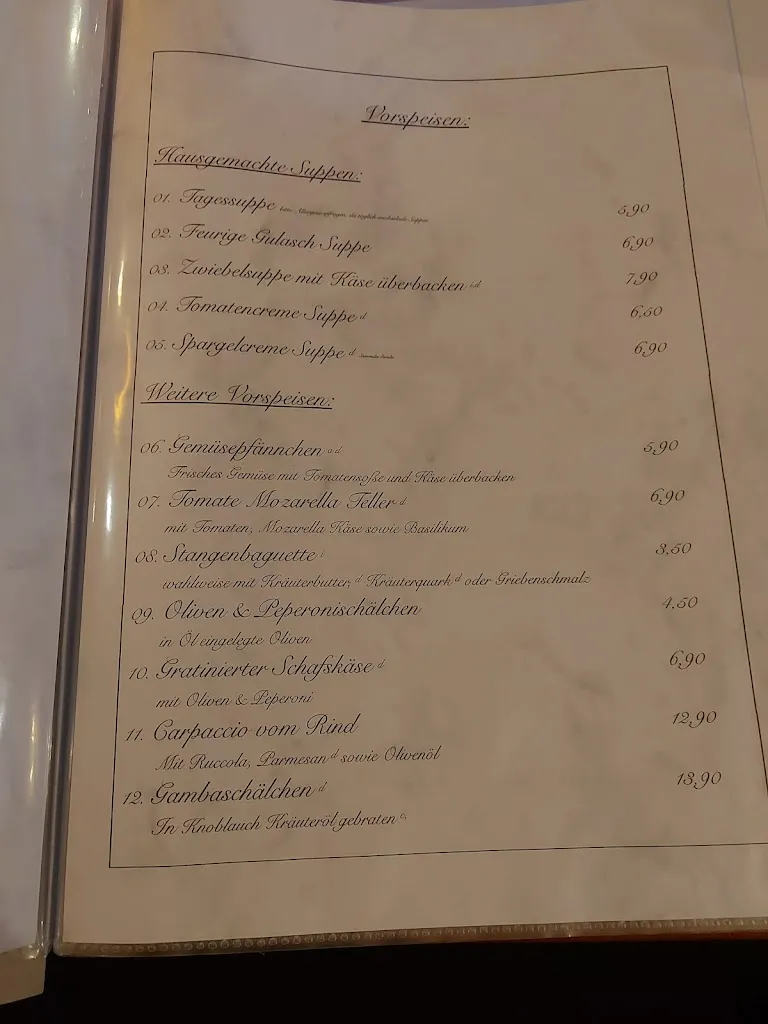 Vorspeisen:
Hausgemachte Suppen:
01. Tagessuppe 5,90
02. Feurige Gulasch Suppe 6,90
03. Zwiebelsuppe mit Käse überbacken 7,90
04. Tomatencreme Suppe d 6,50
05. Spargelcreme Suppe d 6,90
Weitere Vorspeisen:
06. Gemüsepfännchen a d 5,90
Frisches Gemüse mit Tomatensoße und Käse überbacken
07. Tomate Mozarella Teller d 6,90
mit Tomaten, Mozarella Käse sowie Basilikum
08. Stangenbaguette 3,50
wahlweise mit Kräuterbutter, d Kräuterquark d oder Griebenschmalz
09. Oliven & Peperonischälchen 4,50
in Öl eingelegte Oliven
10. Gratinierter Schafskäse d 6,90
mit Oliven & Peperoni
11. Carpaccio vom Rind 12,90
Mit Ruccola, Parmesan d sowie Olivenöl
12. Gambaschälchen d 13,90
In Knoblauch Kräuteröl gebraten